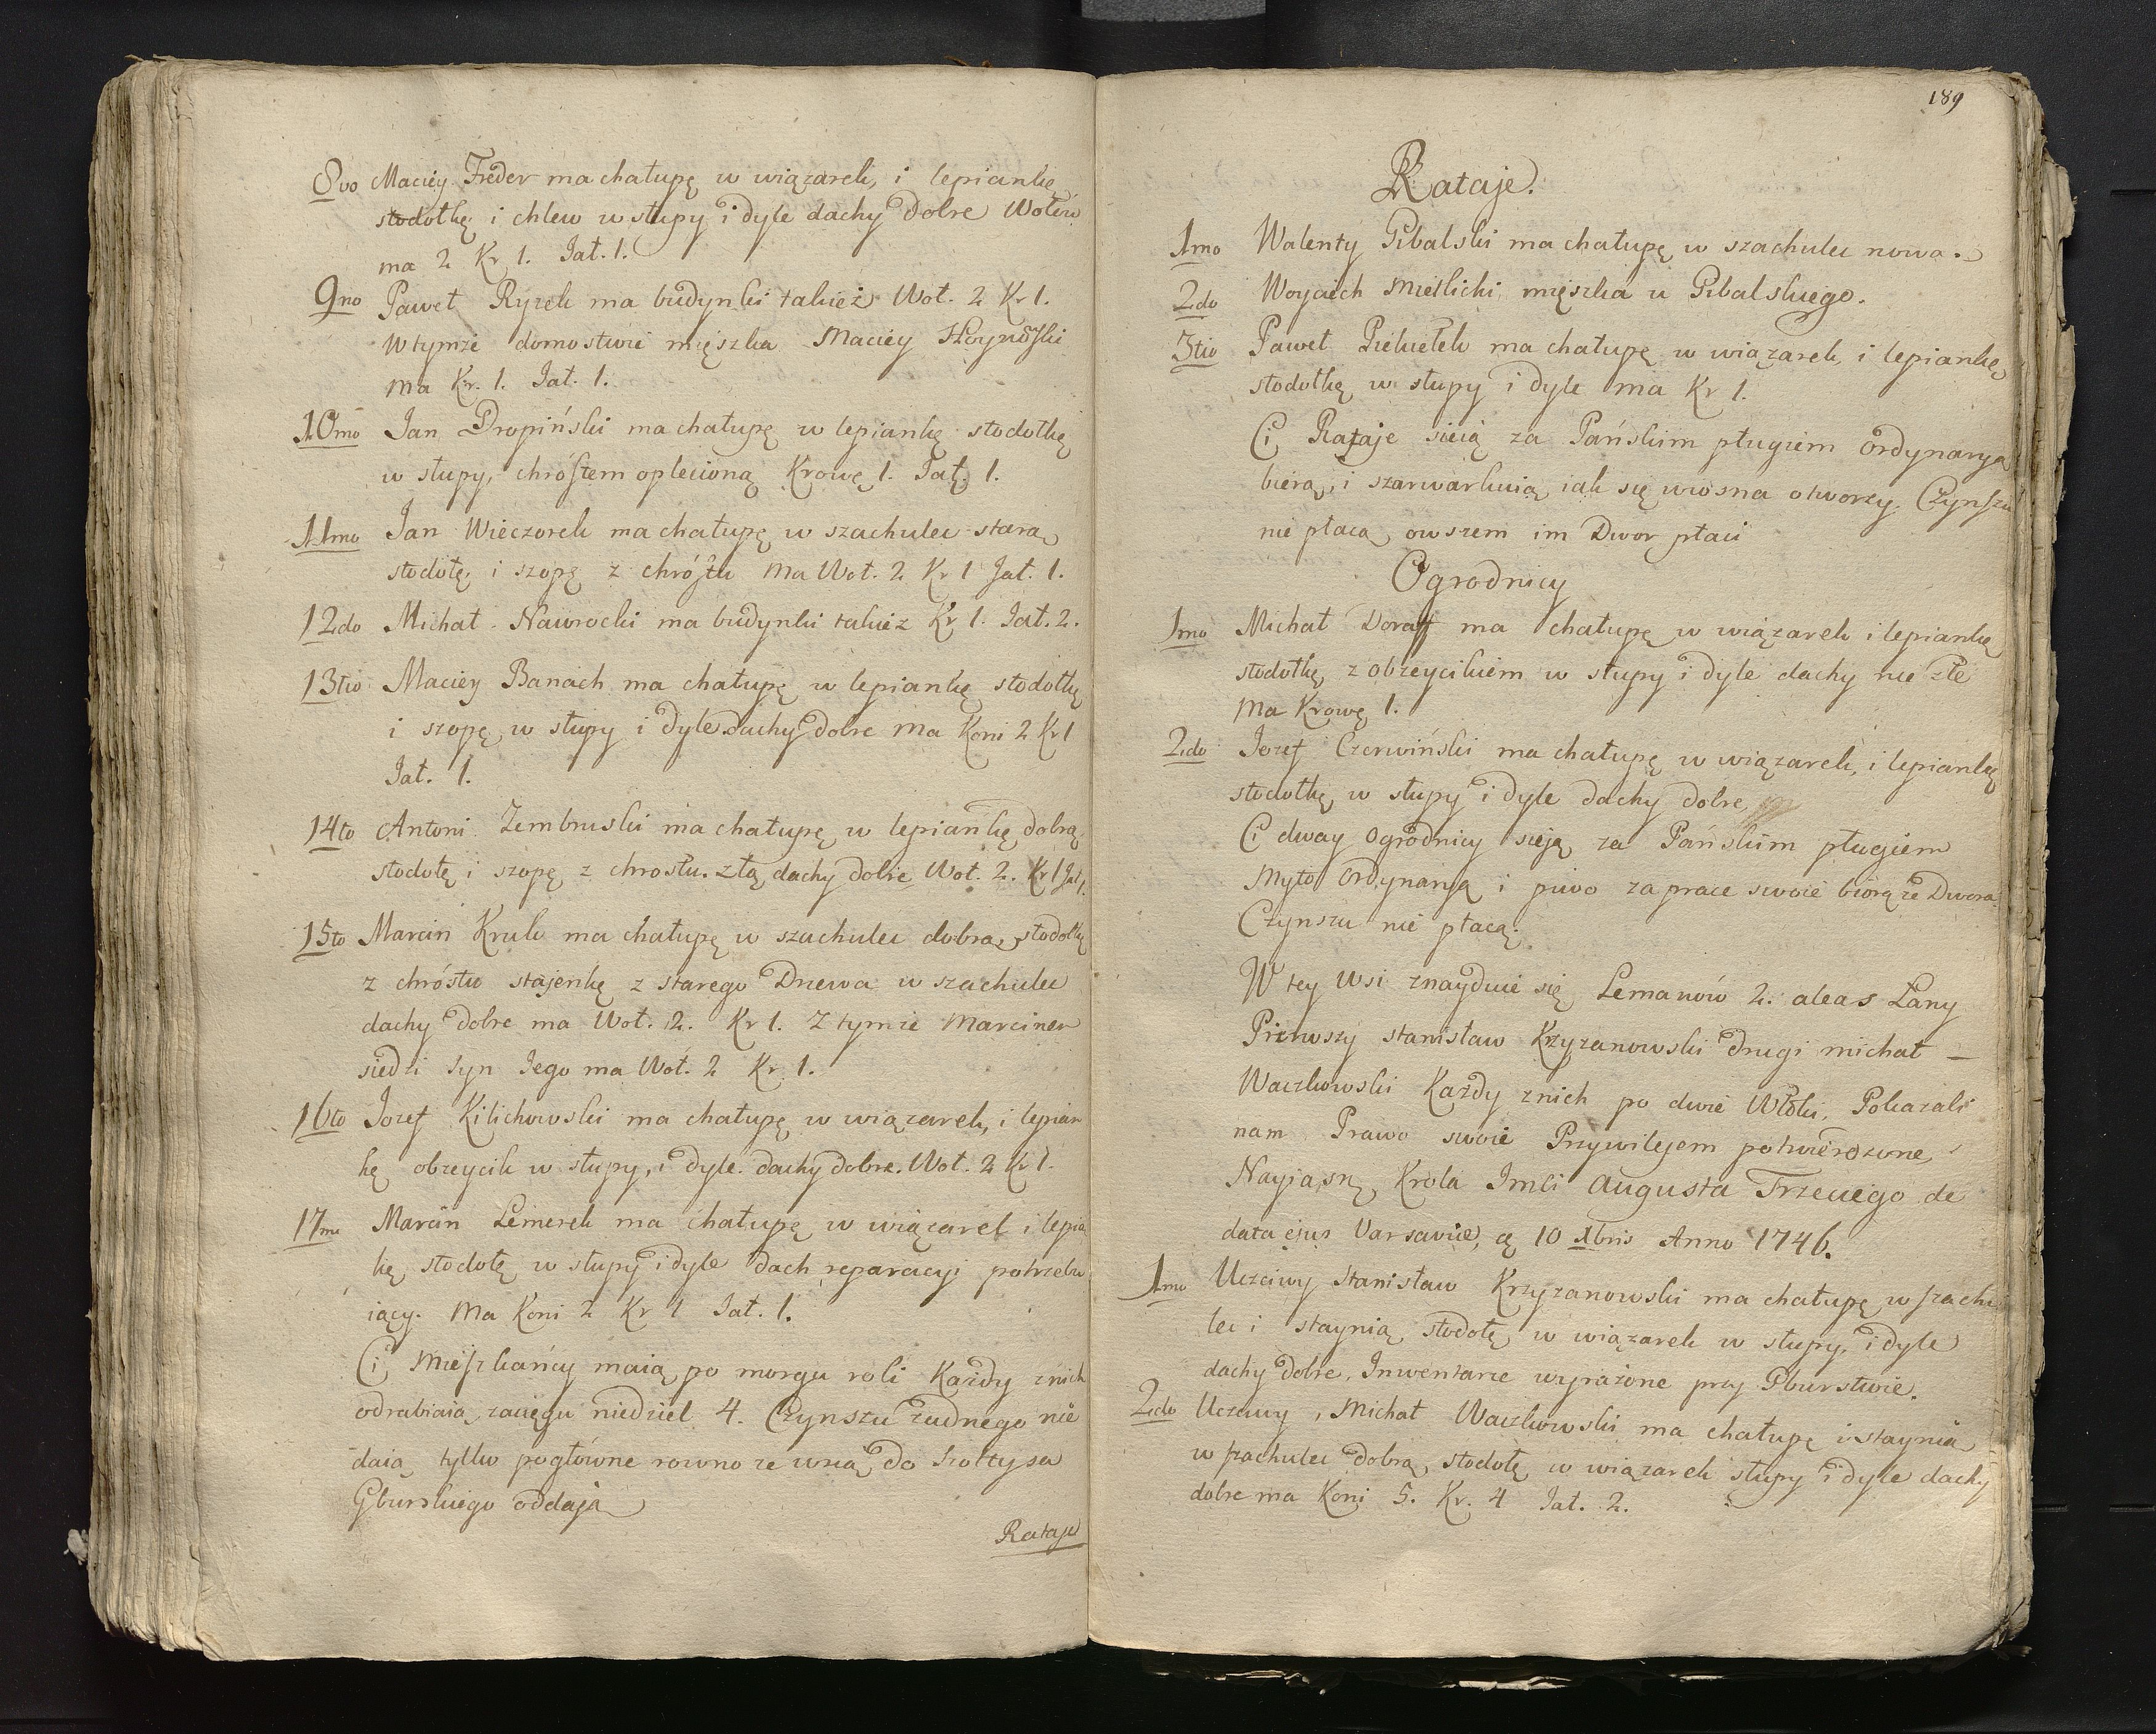 8vo Maciey Freder ma chałupę w wiązarek, i lepiankę
stodołkę i chlew w słupy i dyle dachy dobre Wołów
ma 2 Kr 1. Jał. 1.
9no Paweł Ryzek ma budynki takież Woł. 2 Kr 1.
w tymże domostwie mięszka Maciey
ma Kr. 1. Jał. 1.
10mo Jan Dropiński ma chałupę w lepiankę stodołkę
w słupy, chróstem oplecioną Krowę 1. Jał. 1.
11mo Jan Wieczorek ma chałupę w szachulec starą
stodołę i szopę z chróstu ma Woł. 2 Kr 1 Jał. 1.
12do Michał Nawrocki ma budynki takież Kr 1. Jał. 2.
13tio Maciey Banach ma chałupę w lepiankę stodołkę
i szopę w słupy i dyle dachy dobre ma Koni 2 Kr 1
Jał. 1.
14to Antoni Zembruski ma chałupę w lepiankę dobrą
stodołę i szopę z chrostu. złą dachy dobre Woł. 2. Kr 1 Jał 1.
15to Marcin Kruk ma chałupę w szachulec dobrą stodołkę
z chróstu stajenkę z starego Drzewa w szachulec
dachy dobre ma Woł. 2. Kr 1. Z tymże Marcinem
siedzi syn Jego ma Woł. 2 Kr. 1.
16to Jozef Kilichowski ma chałupę w wiązarek, i lepian
kę obreycik w słupy, i dyle. dachy dobre. Woł. 2 Kr 1.
17mo Marcin Lemerek ma chałupę w wiązarek i lepia
kę stodołę w słupy i dyle dach reparacyi potrzebu
iący. Ma Koni 2 Kr 1 Jał. 1.
Ci Mieszkańcy maią po morgu roli Każdy z nich
odrabiaią zaciegu niedziel 4. Czynszu żadnego nie
daią tylko pogłówne rowno ze wsią do Szołtysa
Gburskiego oddają
Rataje
189
Rataje.
1mo Walenty Gibalski ma chałupę w szachulec nową.
2do Woyciech Mieslicki mięszka u Gibalskiego.
3tio Paweł Piekiełek ma chałupę w wiązarek, i lepiankę
stodołkę w słupy i dyle ma Kr 1.
Ci Rataje sieią za Pańskim pługiem Ordynaryą
bierą, i szarwarkuią iak się wiosna otworzy. Czynszu
nie płacą owszem im Dwor płaci
Ogrodnicy
1mo Michał Doraff ma chałupę w wiązarek i lepiankę
stodołkę z obreycikiem w słupy i dyle dachy nie złe
ma Krowę 1.
2do Jozef Czerwiński ma chałupę w wiązarek, i lepiankę
stodołkę w słupy i dyle dachy dobre
Ci dway Ogrodnicy sieją za Pańskim pługiem
Myto Ordynaryą i piwo za prace swoie biorą ze Dwora
Czynszu nie płacą.
W tey Wsi znayduie się Lemanów 2. aleas Łany
Pierwszy Stanisław Krzyzanowski drugi Michał –
Waczkowski Każdy z nich po dwie Włóki. Pokazali
nam Prawo swoie Przywilejem potwierdzone
Nayjasn. Krola Jmci Augusta Trzeciego de
data ejus Varsaviæ, 10 Xbris Anno 1746.
1mo Uczciwy Stanisław Krzyzanowski ma chałupę w szachu
lec i staynią stodołę w wiązarek w słupy, i dyle
dachy dobre, Inwentarze wyrażone przy Gburstwie.
2do Uczciwy, Michał Waczkowski ma chałupę i staynią
w szachulec dobrą, stodołę w wiązarek słupy i dyle dachy
dobre ma Koni 5. Kr. 4 Jał. 2.